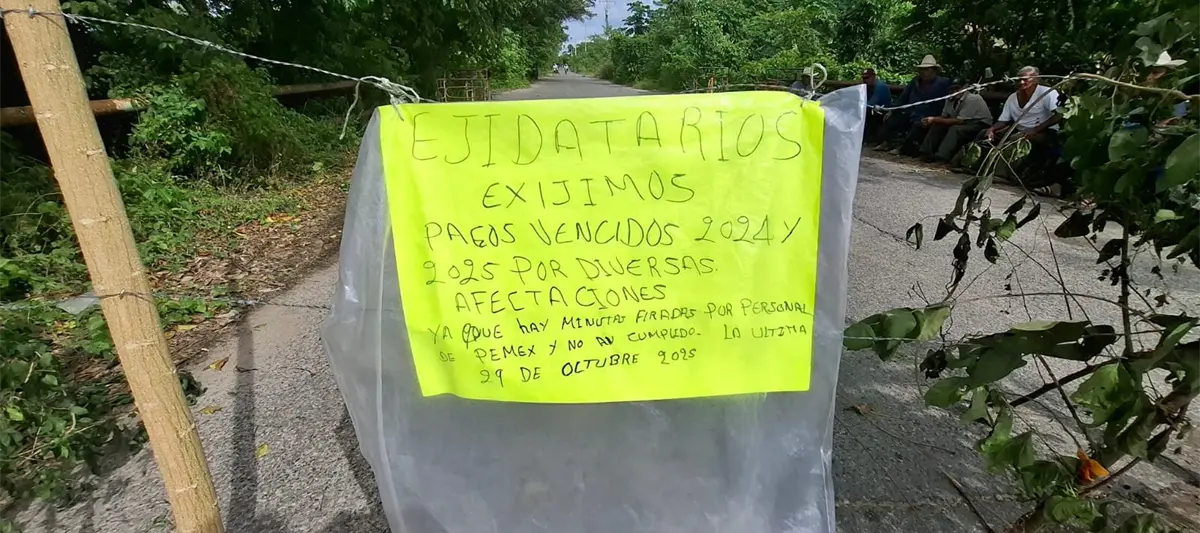 EJIDATARIOS
EXIJIMOS
PAGOS VENCIDOS 2024 Y
2025 POR DIVERSAS.
AFECTACIONES
YA QUE HAY MINUTAS FIRADAS POR PERSONAL
DE PEMEX Y NO AN CUMPLIDO. LA ULTIMA
29 DE OCTUBRE 2025